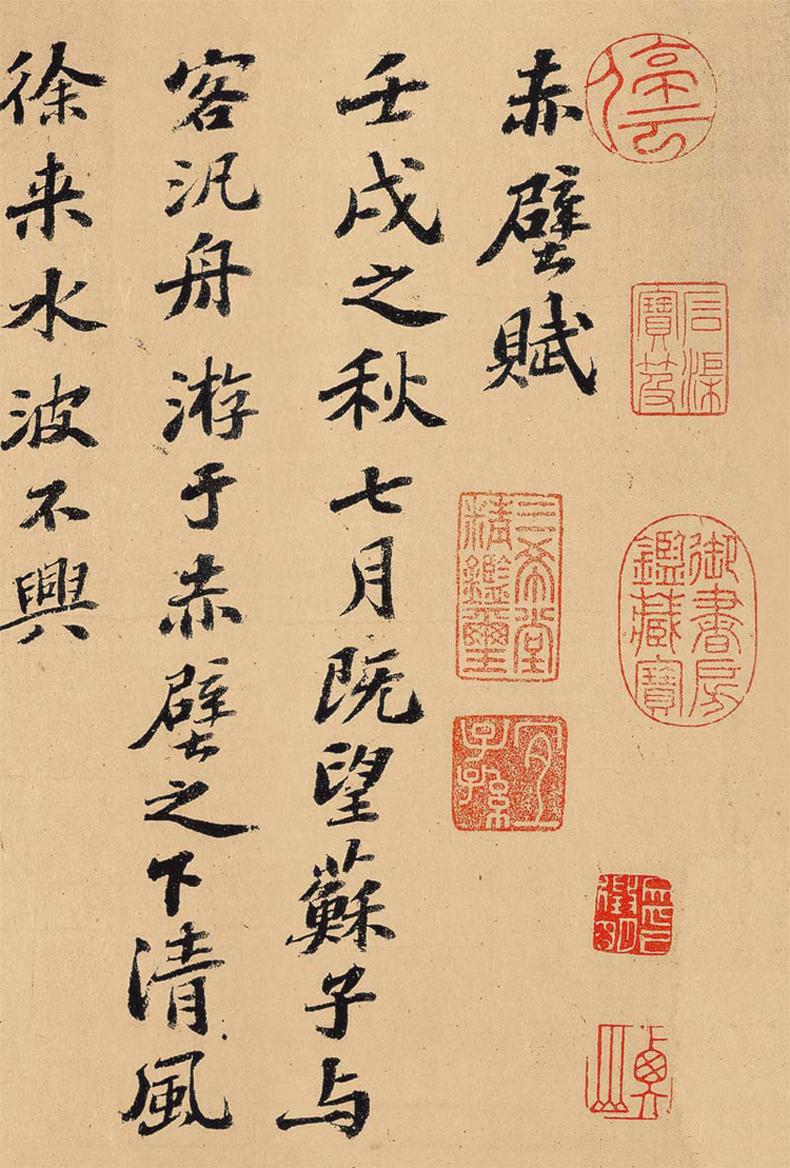 停云
石渠寶笈
御書房鑑藏寶
赤壁賦
三希堂精鑑璽
宜子孫
壬戌之秋七月既望蘇子与
客汎舟游于赤壁之下清風
徐来水波不興